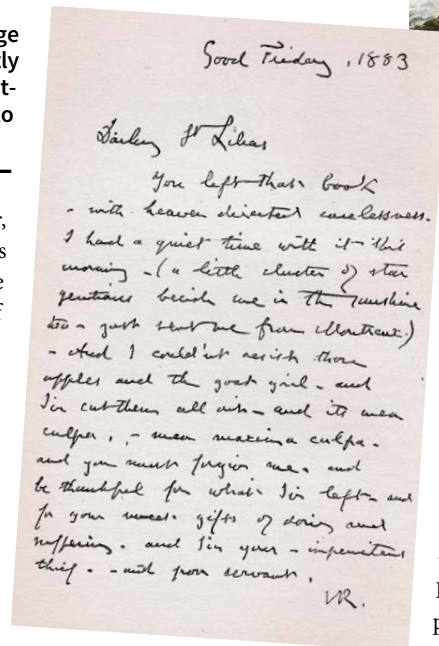 ge
tly
t-
to
r,
s
e
f
Good Friday, 1883
Darling St Lilias
You left that book
- with heaven directed carelessness.
I had a quiet time with it this
morning - (a little cluster of star
gentians beside me in the sunshine
too - just sent me from Montreux.)
- And I could'nt resist those
apples and the goat girl - and
I've cut them all out - and its mea
culpa, - mea maxima culpa -
and you must forgive me - and
be thankful for what I've left - and
for your gifts of doing and
suffering - and I'm your - impenitent
thief - - and poor servant.
JR.
p